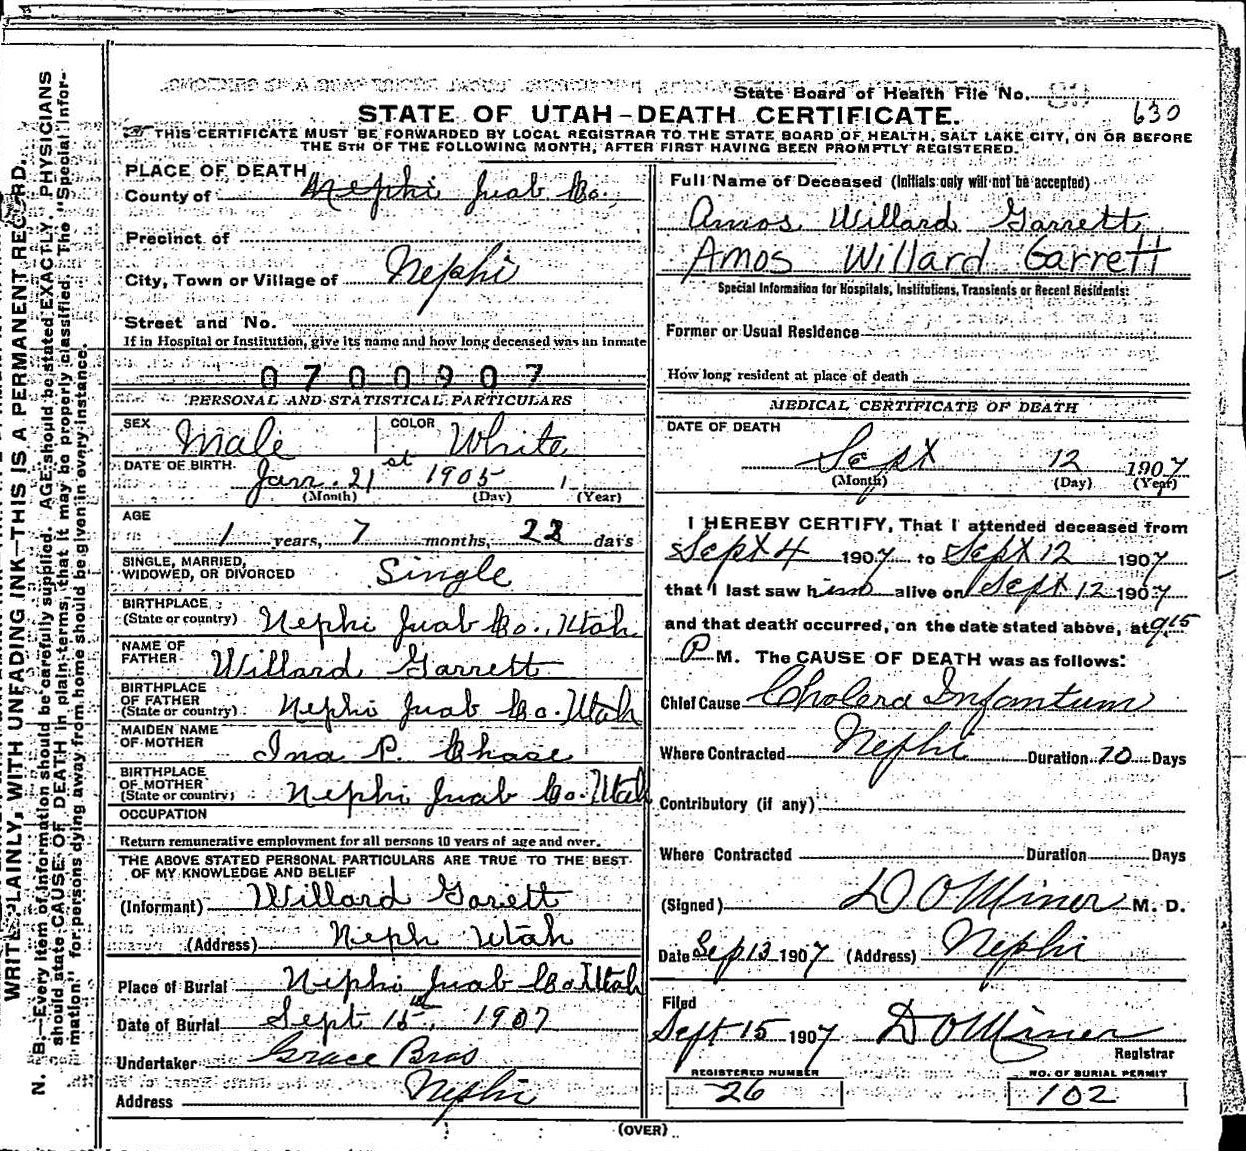 State Board of Health File No. 630
STATE OF UTAH—DEATH CERTIFICATE.
THIS CERTIFICATE MUST BE FORWARDED BY LOCAL REGISTRAR TO THE STATE BOARD OF HEALTH, SALT LAKE CITY, ON OR BEFORE
THE 5TH OF THE FOLLOWING MONTH, AFTER FIRST HAVING BEEN PROMPTLY REGISTERED.
PLACE OF DEATH
County of Nephi Juab Co.
Precinct of
City, Town or Village of Nephi
Street and No.
If in Hospital or Institution, give its name and how long deceased was an Inmate
0700907
PERSONAL AND STATISTICAL PARTICULARS
SEX Male COLOR White
DATE OF BIRTH Jan. 21st 1905
(Month) (Day) (Year)
AGE
1 years, 7 months, 23 days
SINGLE, MARRIED,
WIDOWED, OR DIVORCED Single
BIRTHPLACE
(State or country) Nephi Juab Co., Utah
NAME OF
FATHER Willard Garrett
BIRTHPLACE
OF FATHER
(State or country) Nephi Juab Co. Utah
MAIDEN NAME
OF MOTHER Ina P. Chase
BIRTHPLACE
OF MOTHER
(State or country) Nephi Juab Co. Utah
OCCUPATION
Return remunerative employment for all persons 10 years of age and over.
THE ABOVE STATED PERSONAL PARTICULARS ARE TRUE TO THE BEST
OF MY KNOWLEDGE AND BELIEF
(Informant) Willard Garett
(Address) Neph Utah
Place of Burial Nephi Juab Co Utah
Date of Burial Sept 15th, 1907
Undertaker Grace Bros
Address Nephi
Full Name of Deceased (Initials only will not be accepted)
Amos Willard Garrett
Amos Willard Garrett
Special Information for Hospitals, Institutions, Transients or Recent Residents:
Former or Usual Residence
How long resident at place of death
MEDICAL CERTIFICATE OF DEATH
DATE OF DEATH
Sept 12 1907
(Month) (Day) (Year)
I HEREBY CERTIFY, That I attended deceased from
Sept 4 1907 to Sept 12 1907
that I last saw him alive on Sept 12 1907
and that death occurred, on the date stated above, at 9 15
P M. The CAUSE OF DEATH was as follows:
Chief Cause Cholera Infantum
Where Contracted Nephi Duration 10 Days
Contributory (if any)
Where Contracted Duration Days
(Signed) D O Miner M. D.
Date Sep 13 1907 (Address) Nephi
Filed
Sept 15 1907 D O Miner
Registrar
REGISTERED NUMBER NO. OF BURIAL PERMIT
26 102
(OVER)
WRITE PLAINLY, WITH UNFADING INK—THIS IS A PERMANENT RECORD.
N. B.—Every item of information should be carefully supplied. AGE should be stated EXACTLY. PHYSICIANS
should state CAUSE OF DEATH in plain terms, that it may be properly classified. The "Special Infor-
mation" for persons dying away from home should be given in every instance.